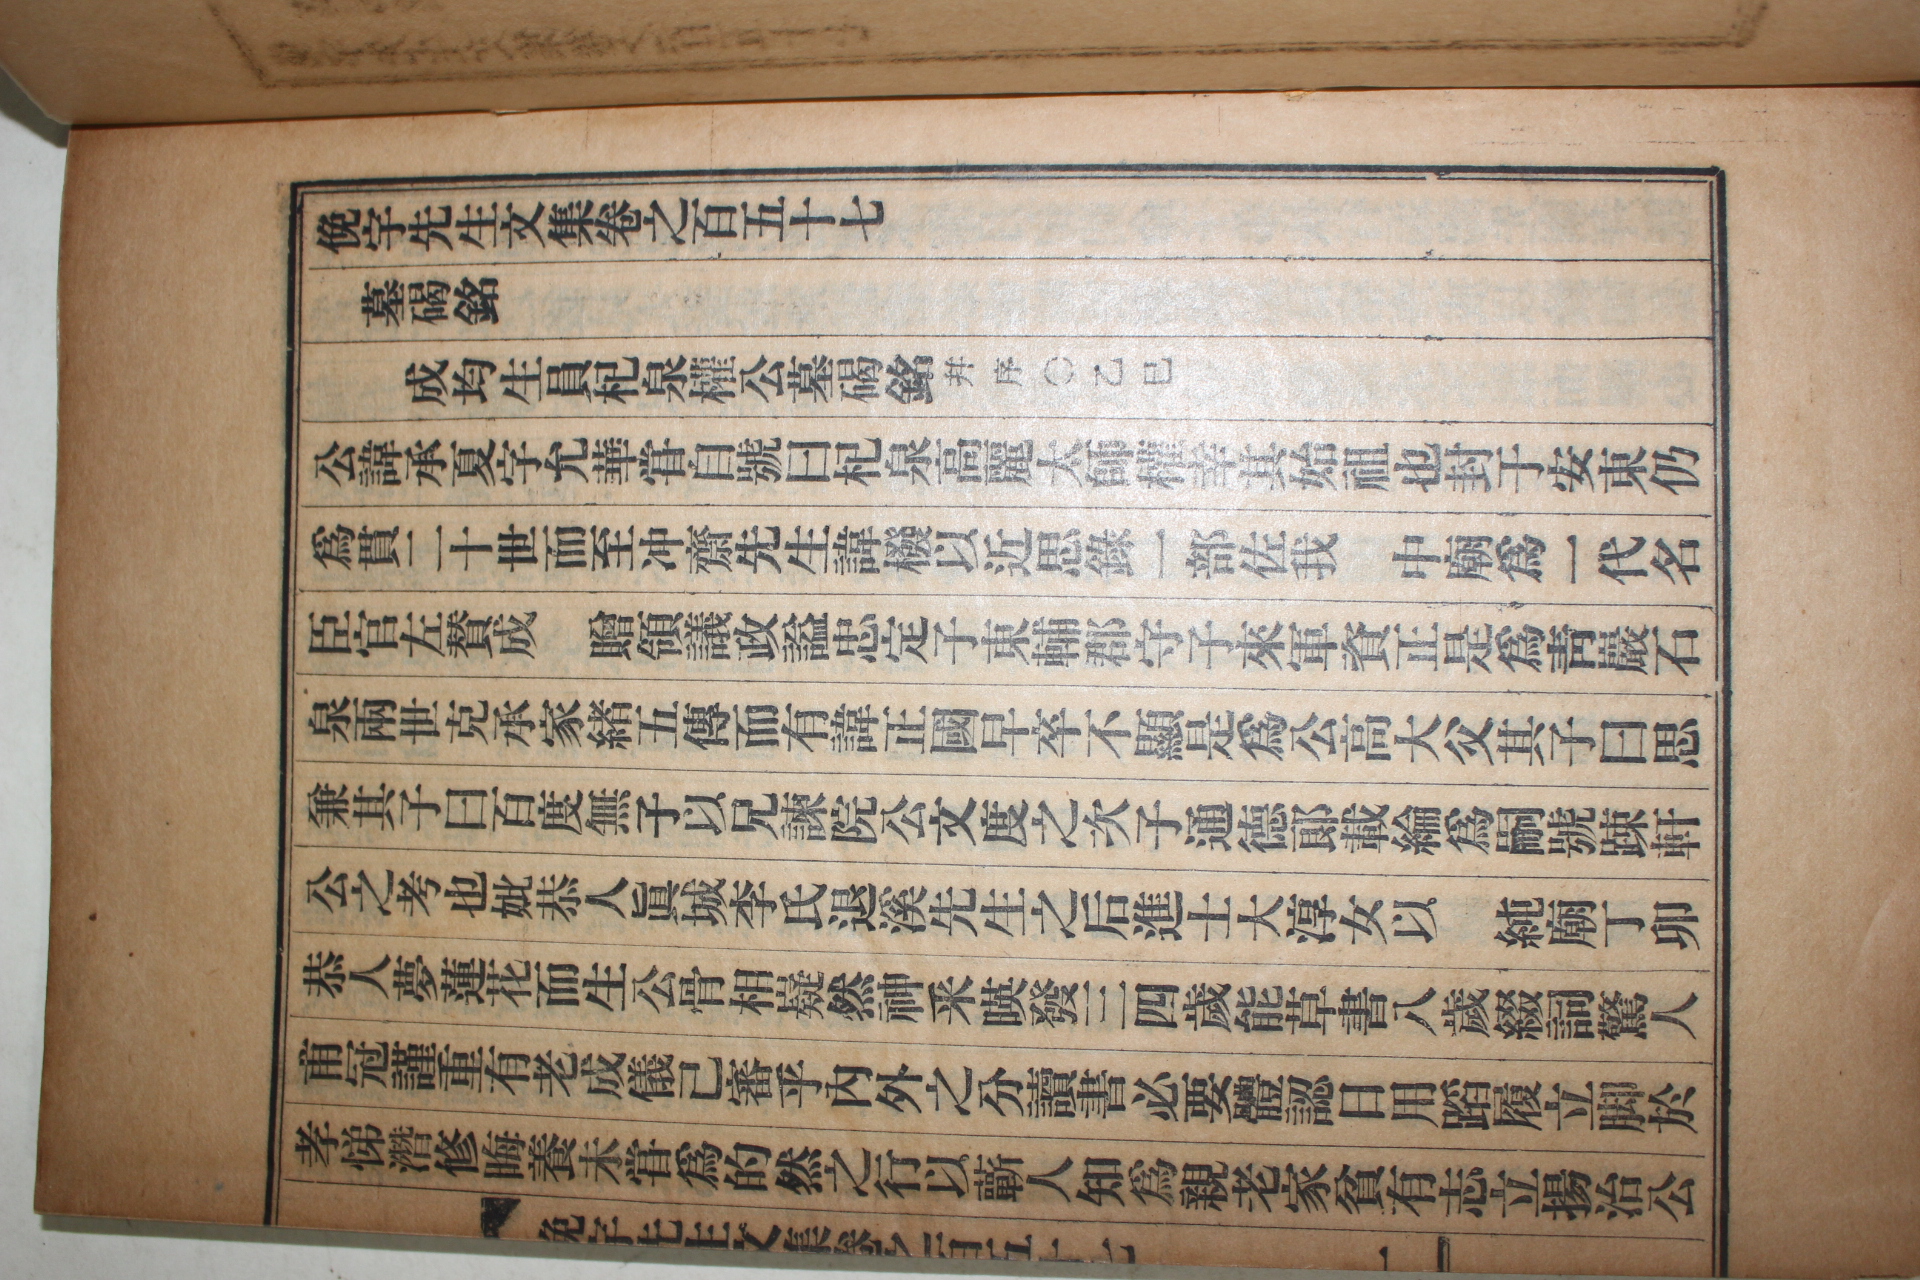 俛宇先生文集卷之百五十七
墓碣銘
成均生員杞泉權公墓碣銘 幷序〇乙巳
公諱承夏字允華嘗自號曰杞泉高麗太師權幸其始祖也封于安東仍
爲貫二十世而至冲齋先生諱橃以近思錄一部佐我 中廟爲一代名
臣官左贊成 贈領議政諡忠定子東輔郡守子來軍資正是爲靑巖石
泉兩世克承家緖五傳而有諱正國早卒不顯是爲公高大父其子曰思
兼其子曰百度無子以兄諫院公文度之次子通德郞載綸爲嗣號踈軒
公之考也妣恭人眞城李氏退溪先生之后進士大淳女以 純廟丁卯
恭人夢蓮花而生公骨相嶷然神釆暎發三四歲能草書八歲綴詞驚人
甫冠謹重有老成儀已審乎內外之分讀書必要體認日用蹈履立脚於
孝悌潛修晦養未嘗爲的然之行以蘄人知爲親老家貧有志立揚治公
俛宇先生文集卷之百五十七
一